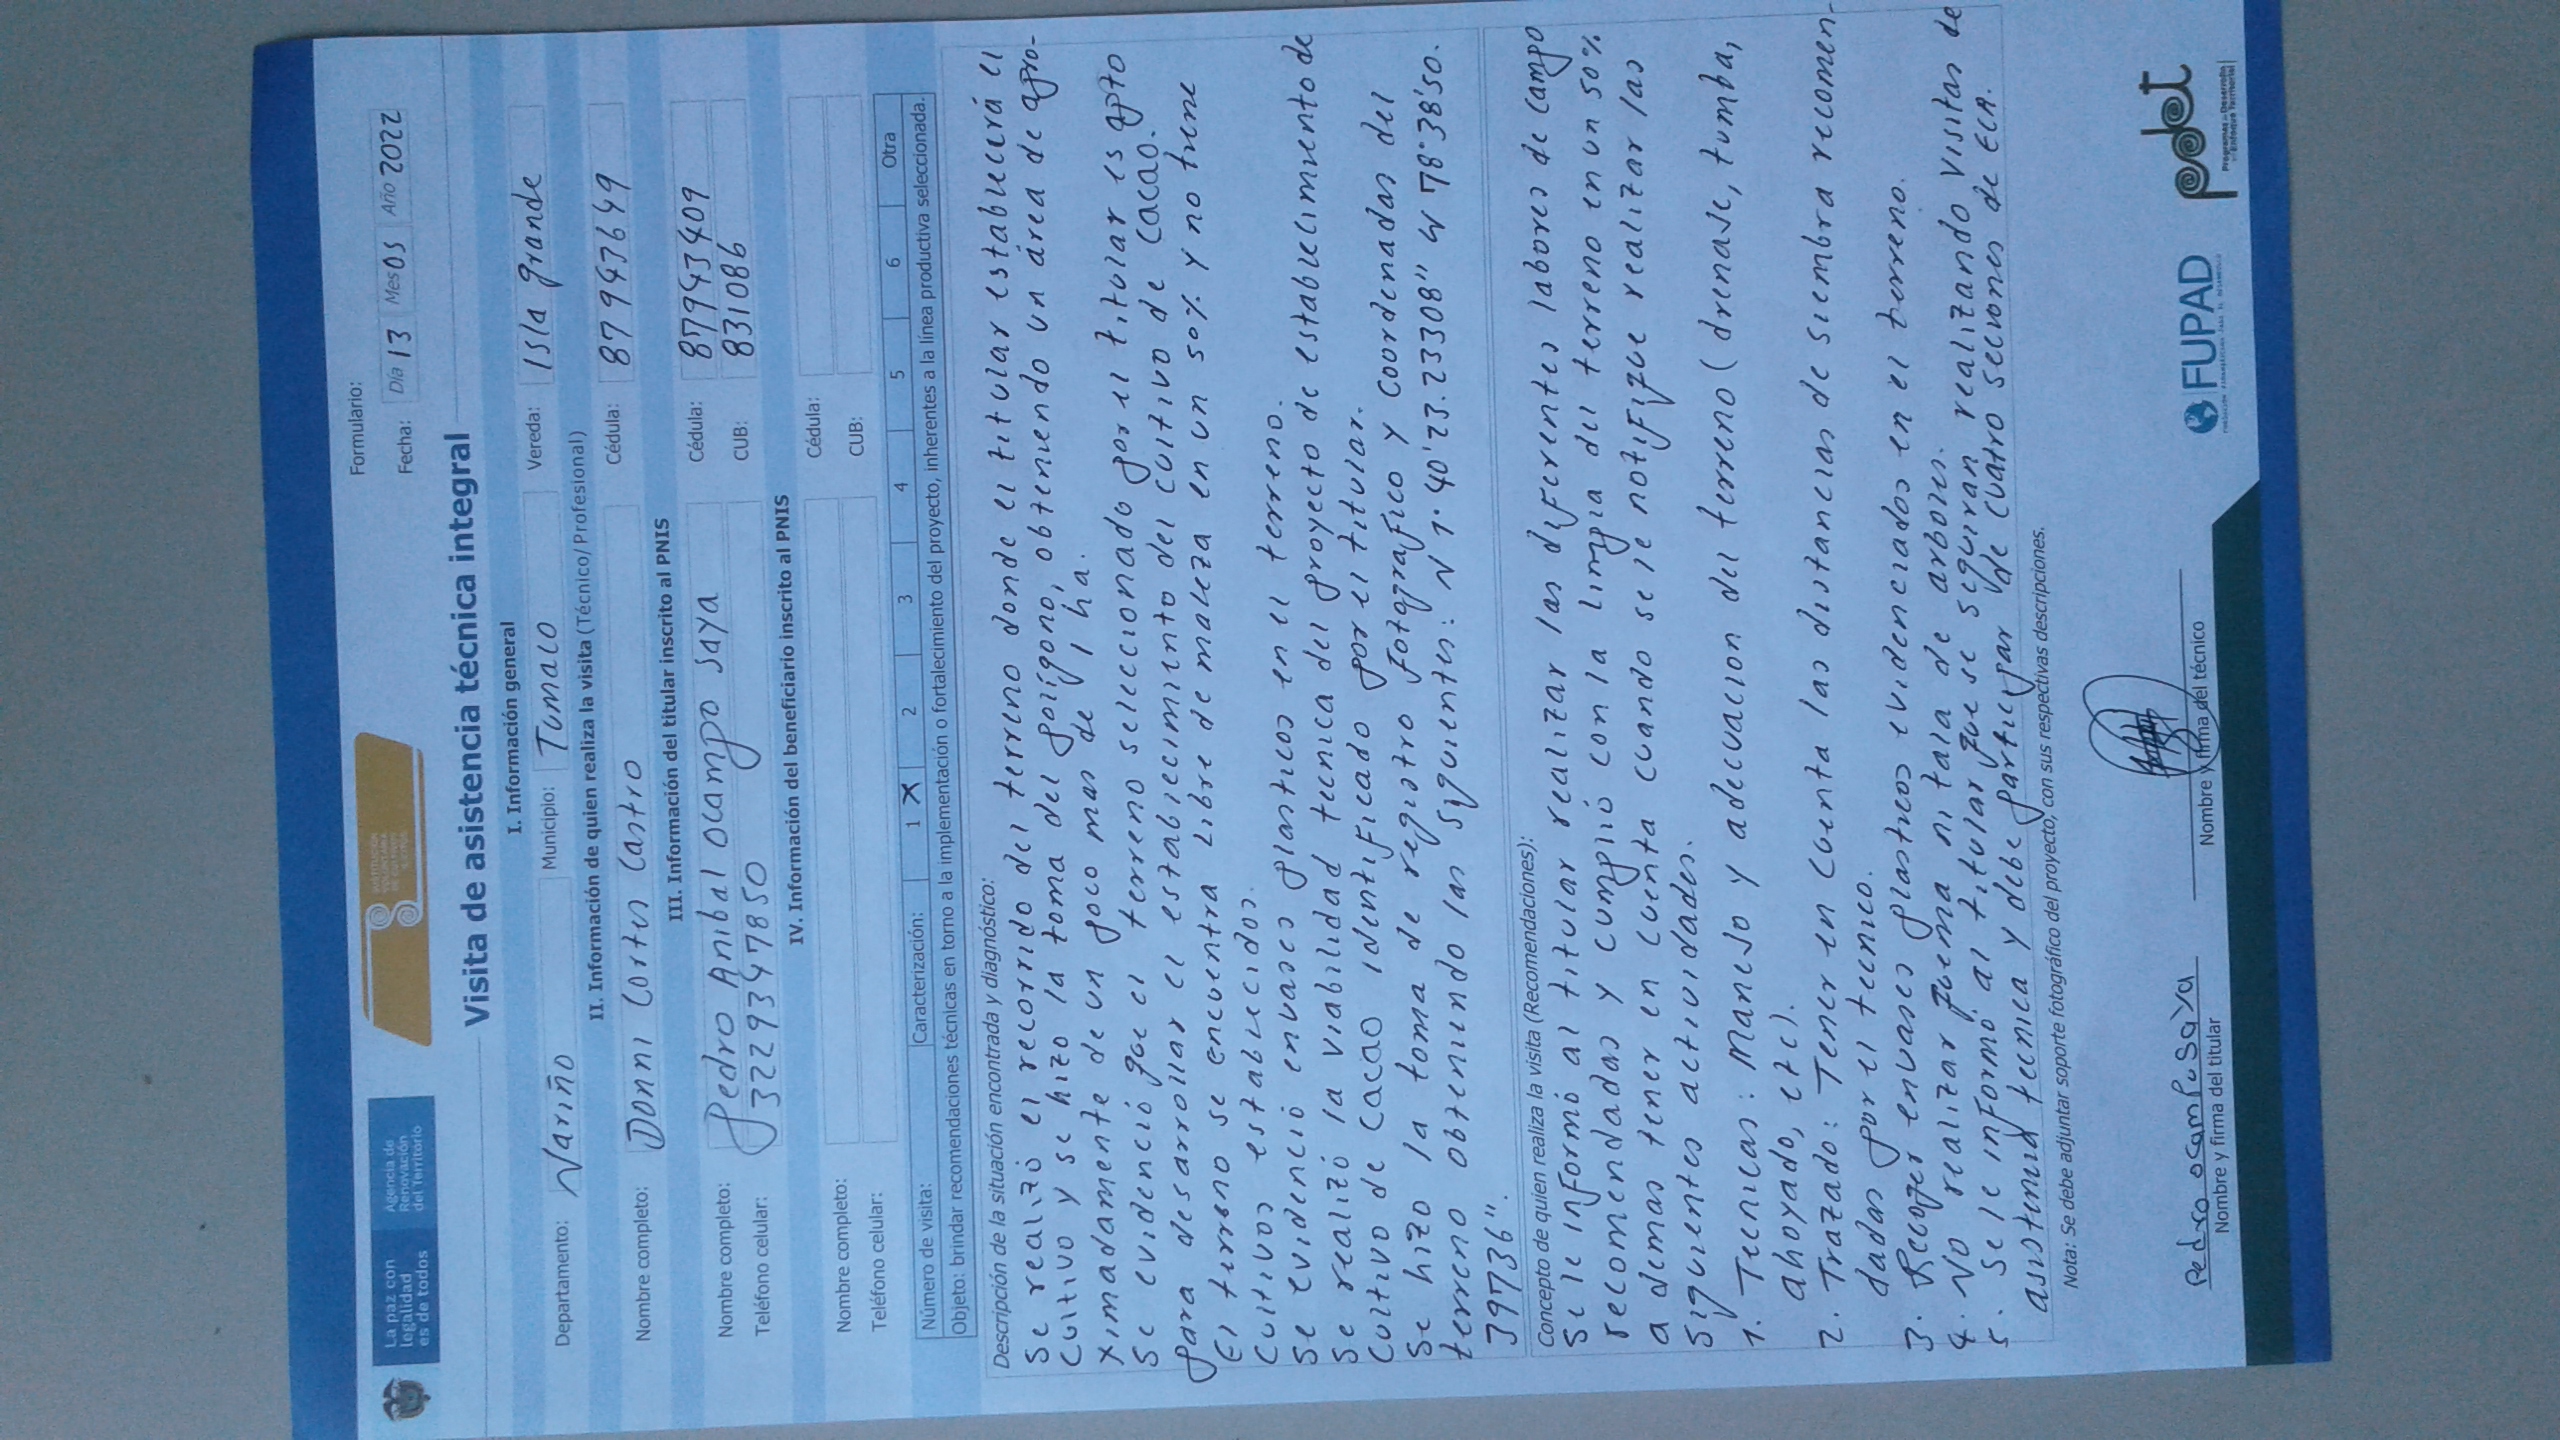 La paz con
legalidad
es de todos
Agencia de
Renovación
del Territorio
Formulario:
Fecha: Día 13 Mes 05 Año 2022
Visita de asistencia técnica integral
I. Información general
Departamento: Nariño Municipio: Tumaco Vereda: Isla grande
II. Información de quien realiza la visita (Técnico/Profesional)
Nombre completo: Donni Cortes Castro Cédula: 87943649
III. Información del titular inscrito al PNIS
Nombre completo: Pedro Anibal ocampo saya Cédula: 87943409
Teléfono celular: 3229347850 CUB: 831086
IV. Información del beneficiario inscrito al PNIS
Nombre completo: Cédula:
Teléfono celular: CUB:
Número de visita: Caracterización: 1 X 2 3 4 5 6 Otra
Objeto: brindar recomendaciones técnicas en torno a la implementación o fortalecimiento del proyecto, inherentes a la línea productiva seleccionada.
Descripción de la situación encontrada y diagnóstico:
Se realizó el recorrido del terreno donde el titular establecerá el
cultivo y se hizo la toma del polígono, obteniendo un área de apro-
ximadamente de un poco mas de 1 ha.
Se evidenció que el terreno seleccionado por el titular es apto
para desarrollar el establecimiento del cultivo de cacao.
El terreno se encuentra libre de maleza en un 50% y no tiene
cultivos establecidos.
Se evidenció envases plasticos en el terreno.
Se realizó la viabilidad tecnica del proyecto de establecimiento de
cultivo de cacao identificado por el titular.
Se hizo la toma de registro fotografico y coordenadas del
terreno obteniendo las siguientes: N 1°40'23.23308" W 78°38'50.
39736".
Concepto de quien realiza la visita (Recomendaciones):
Se le informó al titular realizar las diferentes labores de campo
recomendadas y cumplió con la limpia del terreno en un 50%
a demas tener en cuenta cuando se le notifique realizar las
siguientes actividades.
1. Tecnicas: Manejo y adecuacion del terreno (drenase, tumba,
ahoyado, etc).
2. Trazado: Tener en cuenta las distancias de siembra recomen-
dadas por el tecnico.
3. Recoger envases plasticos evidenciados en el terreno.
4. No realizar quema ni tala de arboles.
5. Se le informó al titular que se seguiran realizando visitas de
asistencia tecnica y debe participar de cuatro secciones de ECA.
Nota: Se debe adjuntar soporte fotográfico del proyecto, con sus respectivas descripciones.
Pedro ocampo saya
Nombre y firma del titular
Nombre y firma del técnico
FUPAD
pdet
Programas de Desarrollo
con Enfoque Territorial